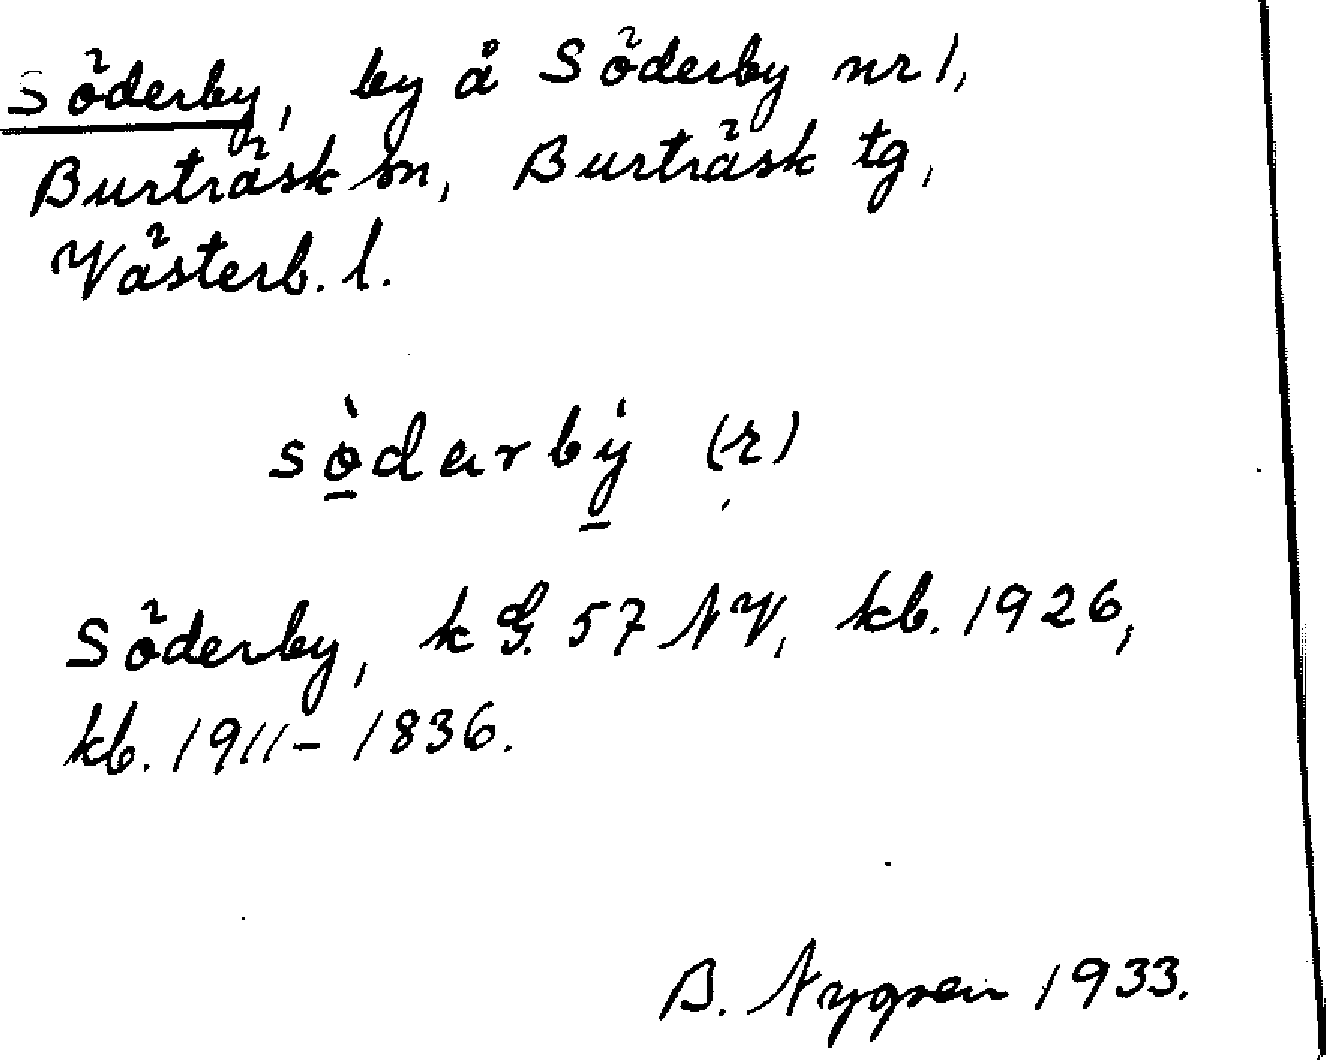 Söderby, by å Söderby nr 1,
Burträsk sn, Burträsk tg,
Västerb. l.
sö̀dɑrbẏ (r)
Söderby, k G. 57 NV, kb. 1926,
kb. 1911– 1836.
B. Nygren 1933.